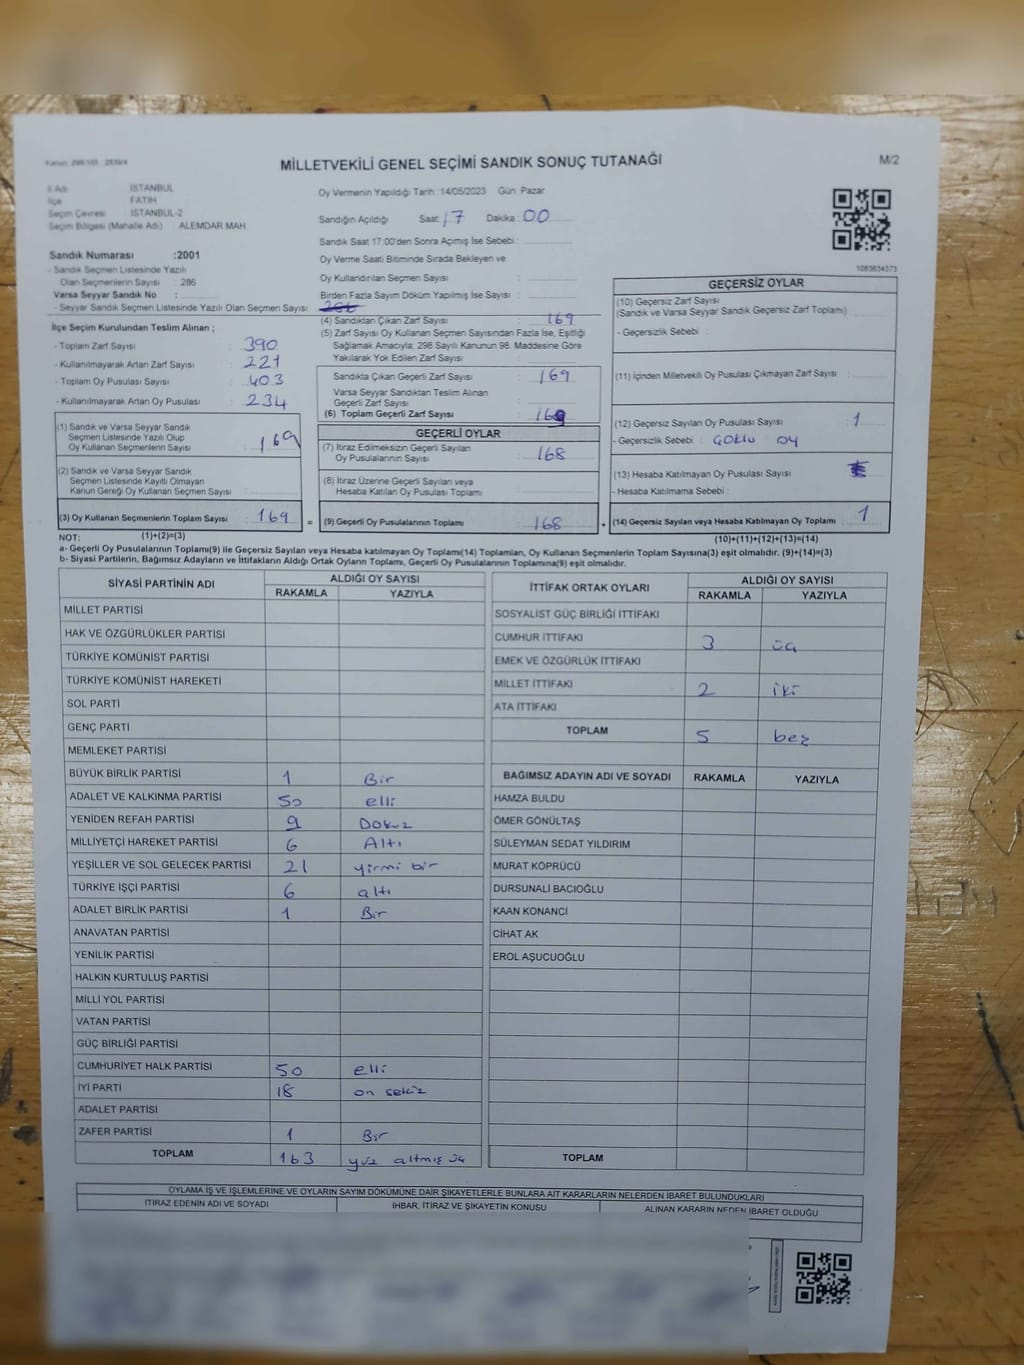 MİLLETVEKİLİ GENEL SEÇİMİ SANDIK SONUÇ TUTANAĞI
M/2
İl Adı İSTANBUL
İlçe FATİH
Seçim Çevresi İSTANBUL-2
Seçim Bölgesi (Mahalle Adı) ALEMDAR MAH.
Oy Vermenin Yapıldığı Tarih :14/05/2023 Gün: Pazar
Sandığın Açıldığı Saat: 17 Dakika: 00
Sandık Saat 17:00'den Sonra Açımış İse Sebebi :
Oy Verme Saati Bitiminde Sırada Bekleyen ve
Oy Kullandırılan Seçmen Sayısı :
Birden Fazla Sayım Döküm Yapılmış İse Sayısı :
Sandık Numarası :2001
- Sandık Seçmen Listesinde Yazılı
Olan Seçmenlerin Sayısı : 286
Varsa Seyyar Sandık No :
- Seyyar Sandık Seçmen Listesinde Yazılı Olan Seçmen Sayısı:
İlçe Seçim Kurulundan Teslim Alınan ;
- Toplam Zarf Sayısı : 390
- Kullanılmayarak Artan Zarf Sayısı : 221
- Toplam Oy Pusulası Sayısı : 403
- Kullanılmayarak Artan Oy Pusulası : 234
(1) Sandık ve Varsa Seyyar Sandık
Seçmen Listesinde Yazılı Olup
Oy Kullanan Seçmenlerin Sayısı : 169
(2) Sandık ve Varsa Seyyar Sandık
Seçmen Listesinde Kayıtlı Olmayan
Kanun Gereği Oy Kullanan Seçmen Sayısı :
(3) Oy Kullanan Seçmenlerin Toplam Sayısı : 169
(4) Sandıktan Çıkan Zarf Sayısı : 169
(5) Zarf Sayısı Oy Kullanan Seçmen Sayısından Fazla İse, Eşitliği
Sağlamak Amacıyla; 298 Sayılı Kanunun 98. Maddesine Göre
Yakılarak Yok Edilen Zarf Sayısı :
Sandıkta Çıkan Geçerli Zarf Sayısı : 169
Varsa Seyyar Sandıktan Teslim Alınan
Geçerli Zarf Sayısı :
(6) Toplam Geçerli Zarf Sayısı : 169
GEÇERLİ OYLAR
(7) İtiraz Edilmeksizin Geçerli Sayılan
Oy Pusulalarının Sayısı : 168
(8) İtiraz Üzerine Geçerli Sayılan veya
Hesaba Katılan Oy Pusulası Toplamı :
= (9) Geçerli Oy Pusulalarının Toplamı : 168
1083634373
GEÇERSİZ OYLAR
(10) Geçersiz Zarf Sayısı
(Sandık ve Varsa Seyyar Sandık Geçersiz Zarf Toplamı) :
- Geçersizlik Sebebi :
(11) İçinden Milletvekili Oy Pusulası Çıkmayan Zarf Sayısı :
(12) Geçersiz Sayılan Oy Pusulası Sayısı : 1
- Geçersizlik Sebebi : GOKLU OY
(13) Hesaba Katılmayan Oy Pusulası Sayısı :
- Hesaba Katılmama Sebebi :
+ (14) Geçersiz Sayılan veya Hesaba Katılmayan Oy Toplamı : 1
NOT: (1)+(2)=(3) (10)+(11)+(12)+(13)=(14)
a- Geçerli Oy Pusulalarının Toplamı(9) ile Geçersiz Sayılan veya Hesaba katılmayan Oy Toplamı(14) Toplamları, Oy Kullanan Seçmenlerin Toplam Sayısına(3) eşit olmalıdır. (9)+(14)=(3)
b- Siyasi Partilerin, Bağımsız Adayların ve İttifakların Aldığı Ortak Oyların Toplamı, Geçerli Oy Pusulalarının Toplamına(9) eşit olmalıdır.
SİYASİ PARTİNİN ADI ALDIĞI OY SAYISI
RAKAMLA YAZIYLA
MİLLET PARTİSİ
HAK VE ÖZGÜRLÜKLER PARTİSİ
TÜRKİYE KOMÜNİST PARTİSİ
TÜRKİYE KOMÜNİST HAREKETİ
SOL PARTİ
GENÇ PARTİ
MEMLEKET PARTİSİ
BÜYÜK BİRLİK PARTİSİ 1 Bir
ADALET VE KALKINMA PARTİSİ 50 elli
YENİDEN REFAH PARTİSİ 9 Dokuz
MİLLİYETÇİ HAREKET PARTİSİ 6 Altı
YEŞİLLER VE SOL GELECEK PARTİSİ 21 yirmi bir
TÜRKİYE İŞÇİ PARTİSİ 6 altı
ADALET BİRLİK PARTİSİ 1 Bir
ANAVATAN PARTİSİ
YENİLİK PARTİSİ
HALKIN KURTULUŞ PARTİSİ
MİLLİ YOL PARTİSİ
VATAN PARTİSİ
GÜÇ BİRLİĞİ PARTİSİ
CUMHURİYET HALK PARTİSİ 50 elli
İYİ PARTİ 18 on sekiz
ADALET PARTİSİ
ZAFER PARTİSİ 1 Bir
TOPLAM 163 yüz altmış üç
İTTİFAK ORTAK OYLARI ALDIĞI OY SAYISI
RAKAMLA YAZIYLA
SOSYALİST GÜÇ BİRLİĞİ İTTİFAKI
CUMHUR İTTİFAKI 3 üç
EMEK VE ÖZGÜRLÜK İTTİFAKI
MİLLET İTTİFAKI 2 iki
ATA İTTİFAKI
TOPLAM 5 beş
BAĞIMSIZ ADAYIN ADI VE SOYADI RAKAMLA YAZIYLA
HAMZA BULDU
ÖMER GÖNÜLTAŞ
SÜLEYMAN SEDAT YILDIRIM
MURAT KÖPRÜCÜ
DURSUNALİ BACIOĞLU
KAAN KONANCİ
CİHAT AK
EROL AŞUCUOĞLU
TOPLAM
OYLAMA İŞ VE İŞLEMLERİNE VE OYLARIN SAYIM DÖKÜMÜNE DAİR ŞİKAYETLERLE BUNLARA AİT KARARLARIN NELERDEN İBARET BULUNDUKLARI
İTİRAZ EDENİN ADI VE SOYADI İHBAR, İTİRAZ VE ŞİKAYETİN KONUSU ALINAN KARARIN NEDEN İBARET OLDUĞU